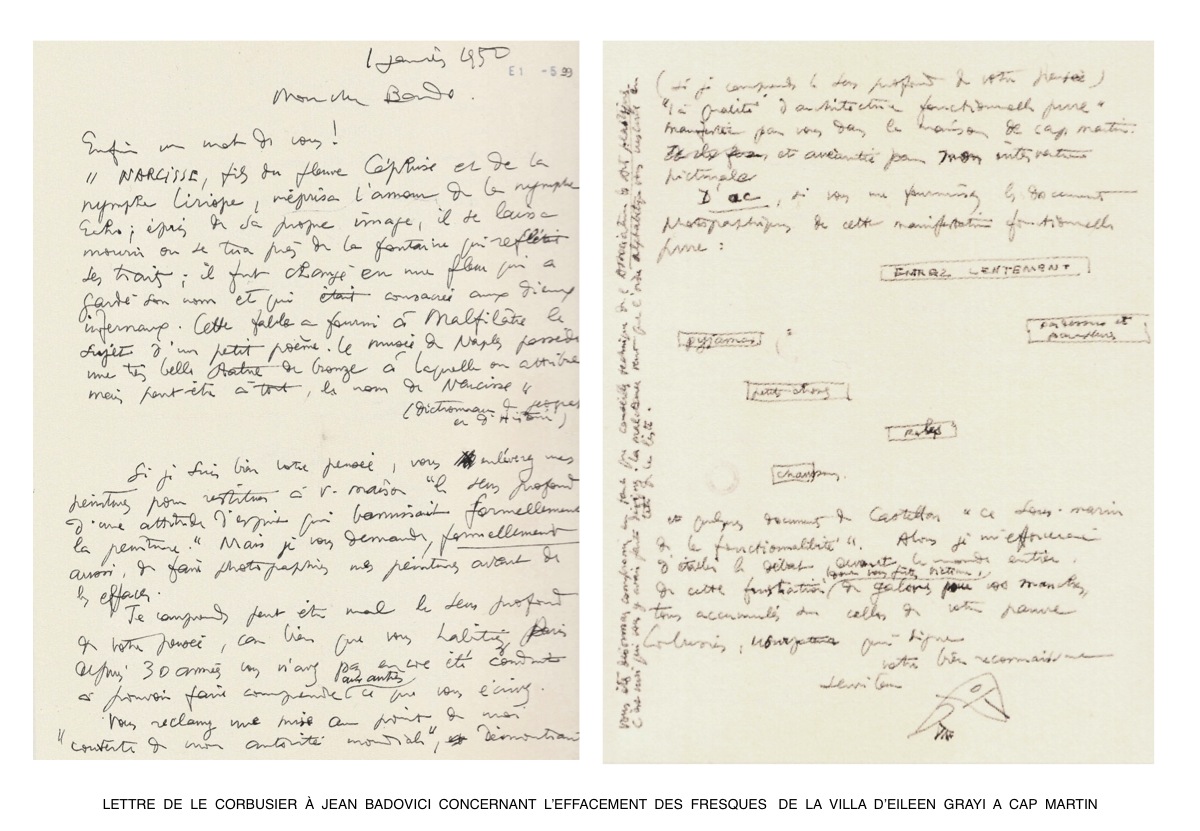 1 janvier 1950
E1 -5 99
Mon cher Bado.
Enfin un mot de vous !
" NARCISSE, fils du fleuve Céphise et de la
nymphe Liriope, méprisa l'amour de la nymphe
Echo ; épris de sa propre image, il se laissa
mourir ou se tua près de la fontaine qui reflétait
ses traits ; il fut changé en une fleur qui a
gardé son nom et qui était consacrée aux dieux
infernaux. Cette fable a fourni à Malfilâtre le
sujet d'un petit poème. Le musée de Naples possède
une très belle statue de bronze à laquelle on attribue
mais peut-être à tort, le nom de Narcisse "
(dictionnaire de
et d'Histoire)
Si je suis bien votre pensée, vous enlèverez mes
peintures pour restituer à v. maison "le sens profond
d'une attitude d'esprit qui bannissait formellement
la peinture." Mais je vous demande, formellement
aussi, de faire photographier mes peintures avant de
les effacer.
Je comprends peut être mal le sens profond
de votre pensée, car bien que vous habitiez Paris
depuis 30 années vous n'avez pas encore été conduit
à pouvoir faire comprendre aux autres ce que vous écrivez.
Vous réclamez une mise au point de moi
"couverte de mon autorité mondiale", démontrant
(si je comprends le sens profond de votre pensée)
"la qualité d'architecture fonctionnelle pure"
manifestée par vous dans la maison de cap martin
et anéantie par mon intervention
picturale
D'ac, si vous me fournissez les documents
photographiques de cette manifestation fonctionnelle
pure :
ENTREZ LENTEMENT
pyjamas
pardessus et
petites choses
et quelques documents de Castellar "ce sous-marin
de la fonctionnalité". Alors je m'efforcerai
d'étaler le débat devant le monde entier.
de cette dont vous fûtes victime, de galons sur vos manches,
tous accumulés sur celles de votre pauvre
Corbusier, qui signe
votre bien reconnaissant
serviteur
LETTRE DE LE CORBUSIER À JEAN BADOVICI CONCERNANT L'EFFACEMENT DES FRESQUES DE LA VILLA D'EILEEN GRAYI A CAP MARTIN